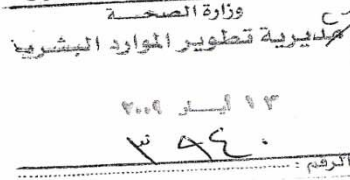 وزارة الصحة
مديرية تطوير الموارد البشرية
١٣ ايار ٢٠٠٩
٣٩٤٠
الرقم :